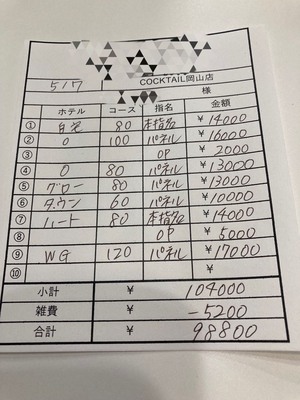 COCKTAIL岡山店
5/7 様
ホテル コース 指名 金額
① 自宅 80 本指名 ¥14000
② O 100 パネル ¥16000
③ OP ¥2000
④ O 80 パネル ¥13000
⑤ グロー 80 パネル ¥13000
⑥ タウン 60 パネル ¥10000
⑦ ハート 80 本指名 ¥14000
⑧ OP ¥5000
⑨ WG 120 パネル ¥17000
⑩ ¥
小計 ¥ 104000
雑費 ¥ -5200
合計 ¥ 98800